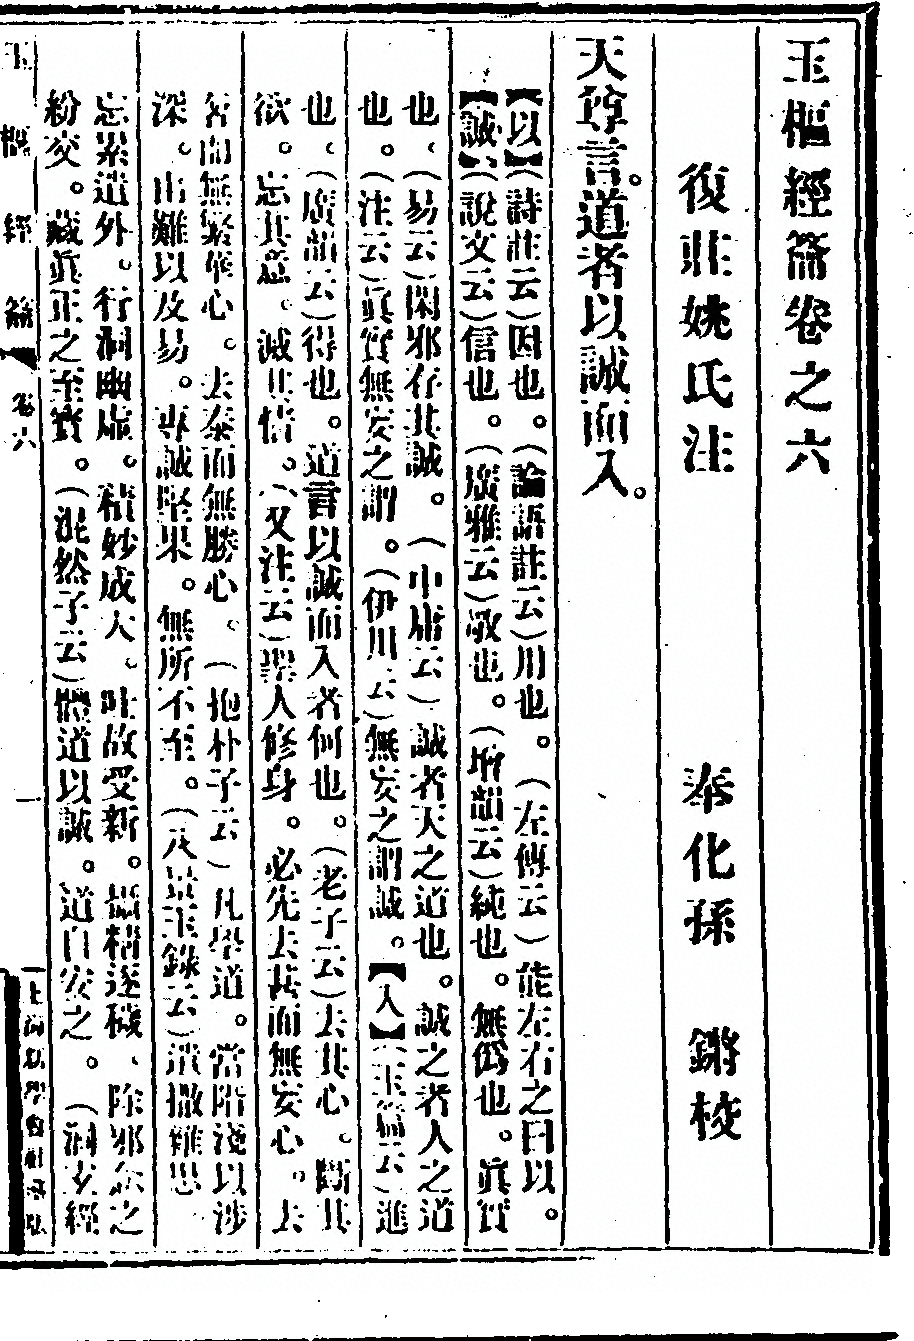 玉樞經籥卷之六
復莊姚氏注　奉化孫　鏘校
天尊言。道者以誠而入。
【以】(詩註云)因也。(論語註云)用也。(左傳云)能左右之曰以。
【誠】(說文云)信也。(廣雅云)敬也。(增韻云)純也。無僞也。眞實
也。(易云)閑邪存其誠。(中庸云)誠者天之道也。誠之者人之道
也。(注云)眞實無妄之謂。(伊川云)無妄之謂誠。【入】(玉篇云)進
也。(廣韻云)得也。道言以誠而入者何也。(老子云)去其心。斷其
欲。忘其意。滅其情。(又注云)聖人修身。必先去甚而無妄心。去
奢而無繁華心。去泰而無勝心。(抱朴子云)凡學道。當階淺以涉
深。由難以及易。專誠堅果。無所不至。(云)遺撤雜思
忘累遺外。行洞幽虛。積妙成大。吐故受新。攝精逐穢、除邪念之
紛交。藏眞正之至寶。(混然子云)體道以誠。道自安之。(洞玄經
玉樞經籥　卷六　一